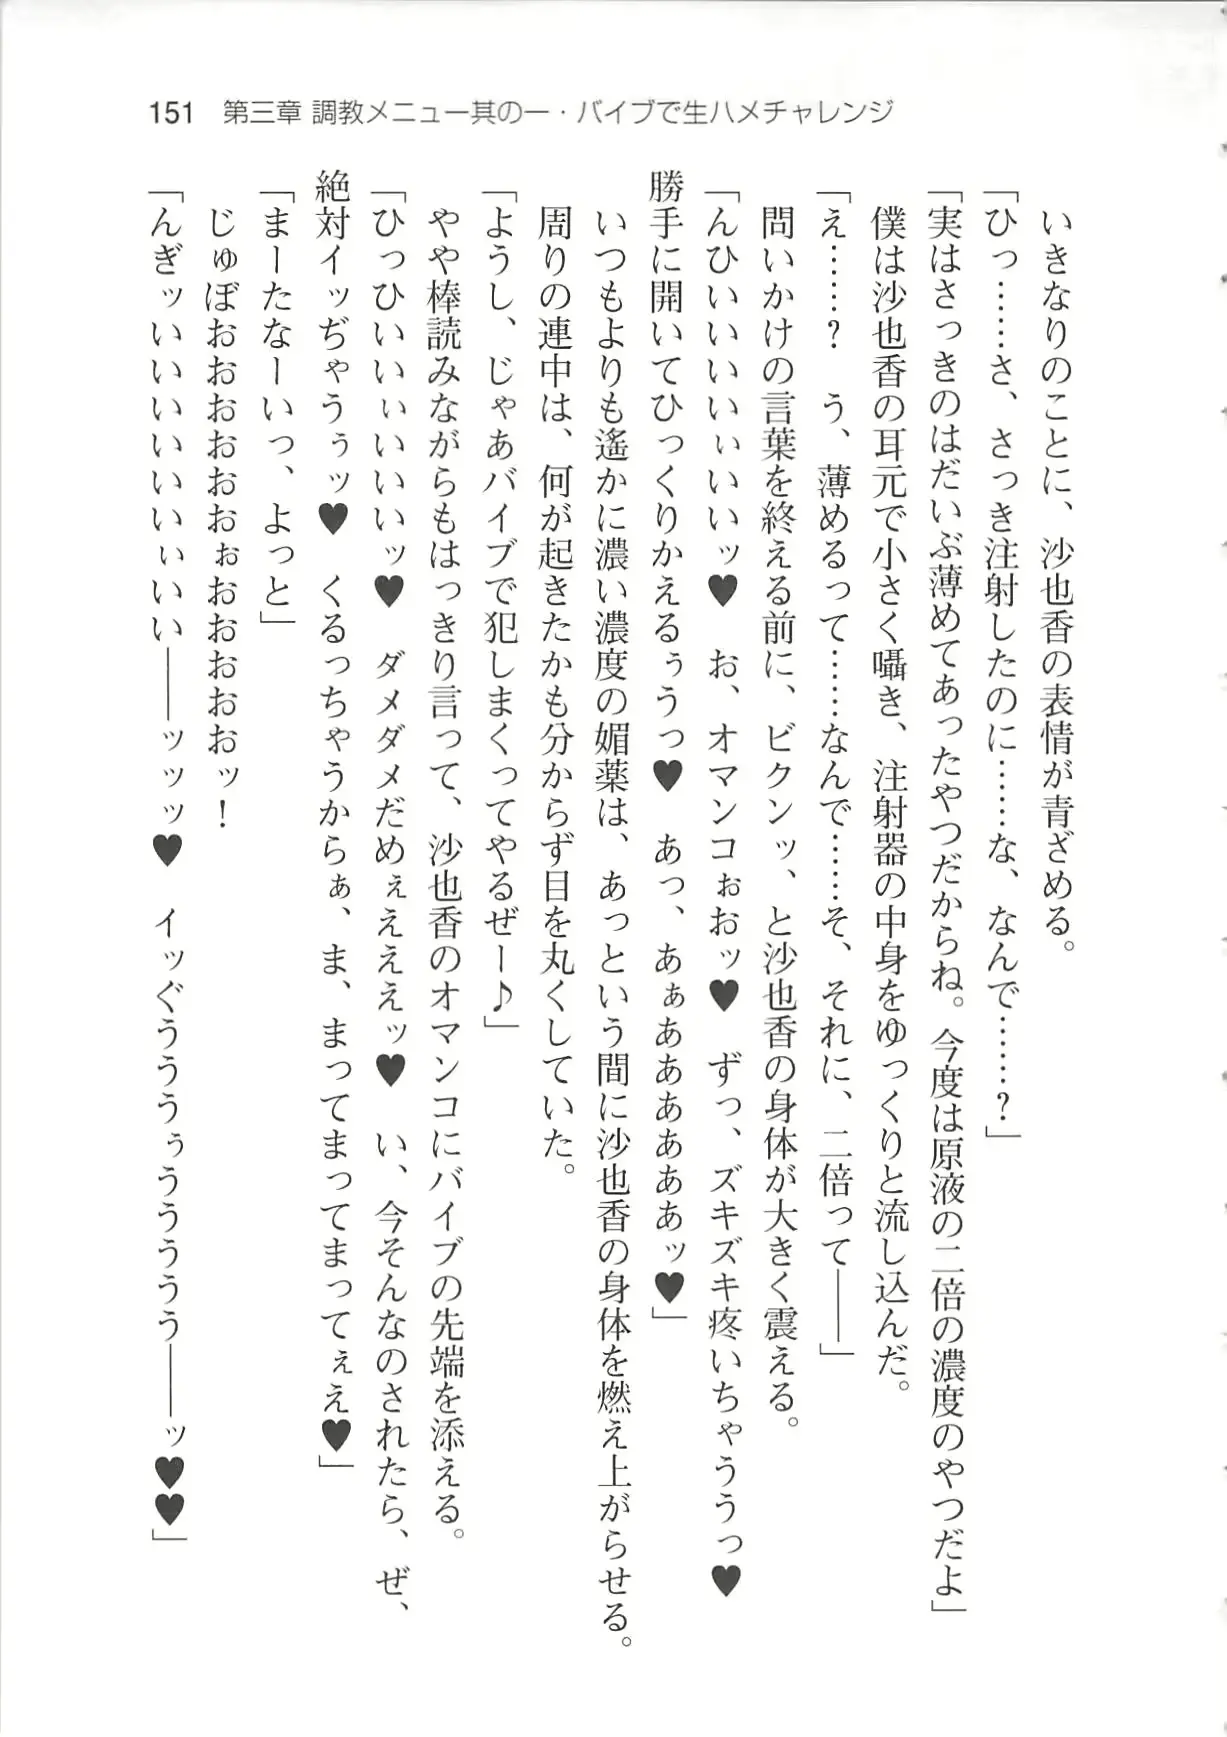 151 第三章 調教メニュー其の一・バイブで生ハメチャレンジ
いきなりのことに、沙也香の表情が青ざめる。
「ひっ……さ、さっき注射したのに……な、なんで……？」
「実はさっきのはだいぶ薄めてあったやつだからね。今度は原液の二倍の濃度のやつだよ」
僕は沙也香の耳元で小さく囁き、注射器の中身をゆっくりと流し込んだ。
「え……？　う、薄めるって……なんで……そ、それに、二倍って――」
問いかけの言葉を終える前に、ビクンッ、と沙也香の身体が大きく震える。
「んひいいいいぃいいッ♥　お、オマンコぉおッ♥　ずっ、ズキズキ疼いちゃううっ♥
勝手に開いてひっくりかえるぅうっ♥　あっ、あぁああああああッ♥」
いつもよりも遙かに濃い濃度の媚薬は、あっという間に沙也香の身体を燃え上がらせる。
周りの連中は、何が起きたかも分からず目を丸くしていた。
「ようし、じゃあバイブで犯しまくってやるぜー♪」
やや棒読みながらもはっきり言って、沙也香のオマンコにバイブの先端を添える。
「ひっひいいぃいいいッ♥　ダメダメだめぇえええッ♥　い、今そんなのされたら、ぜ、
絶対イッぢゃうぅッ♥　くるっちゃうからぁ、ま、まってまってまってぇえ♥」
「まーたなーいっ、よっと」
じゅぼおおおおおおぉおおおおおッ！
「んぎッいいいいいいぃいい――ッッッ♥　イッぐうううぅううううう――ッ♥♥」